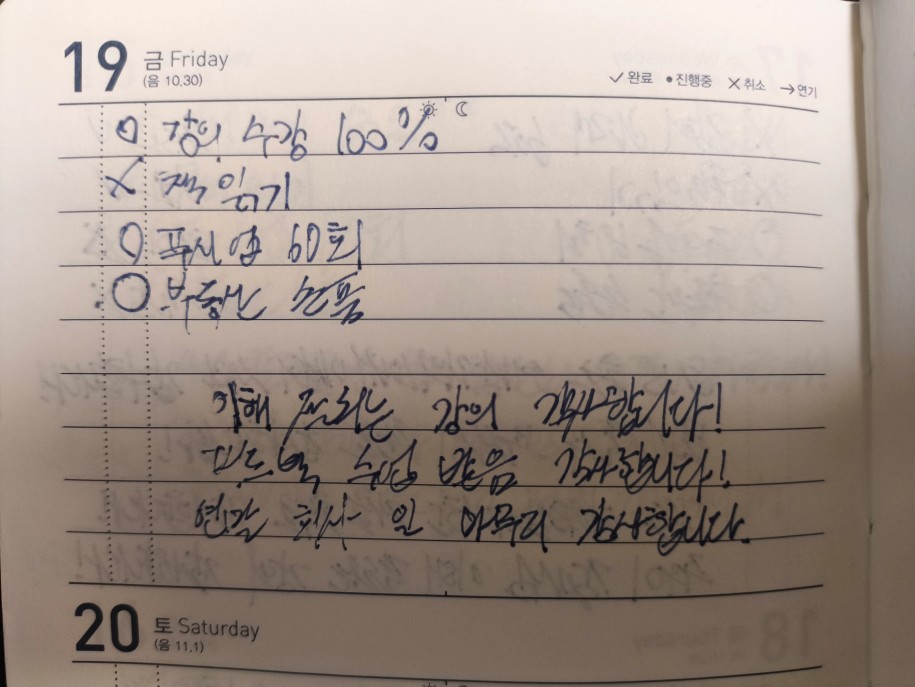 19 금 Friday
(음 10.30)
✓완료 •진행중 ✕취소 →연기
강의 수강 100%
✕ 책 읽기
○ 푸시업 60회
○ 부동산
이해 잘되는 강의 감사합니다!
피드백 수업 받음 감사합니다!
연말 회사 일 마무리 감사합니다.
20 토 Saturday
(음 11.1)